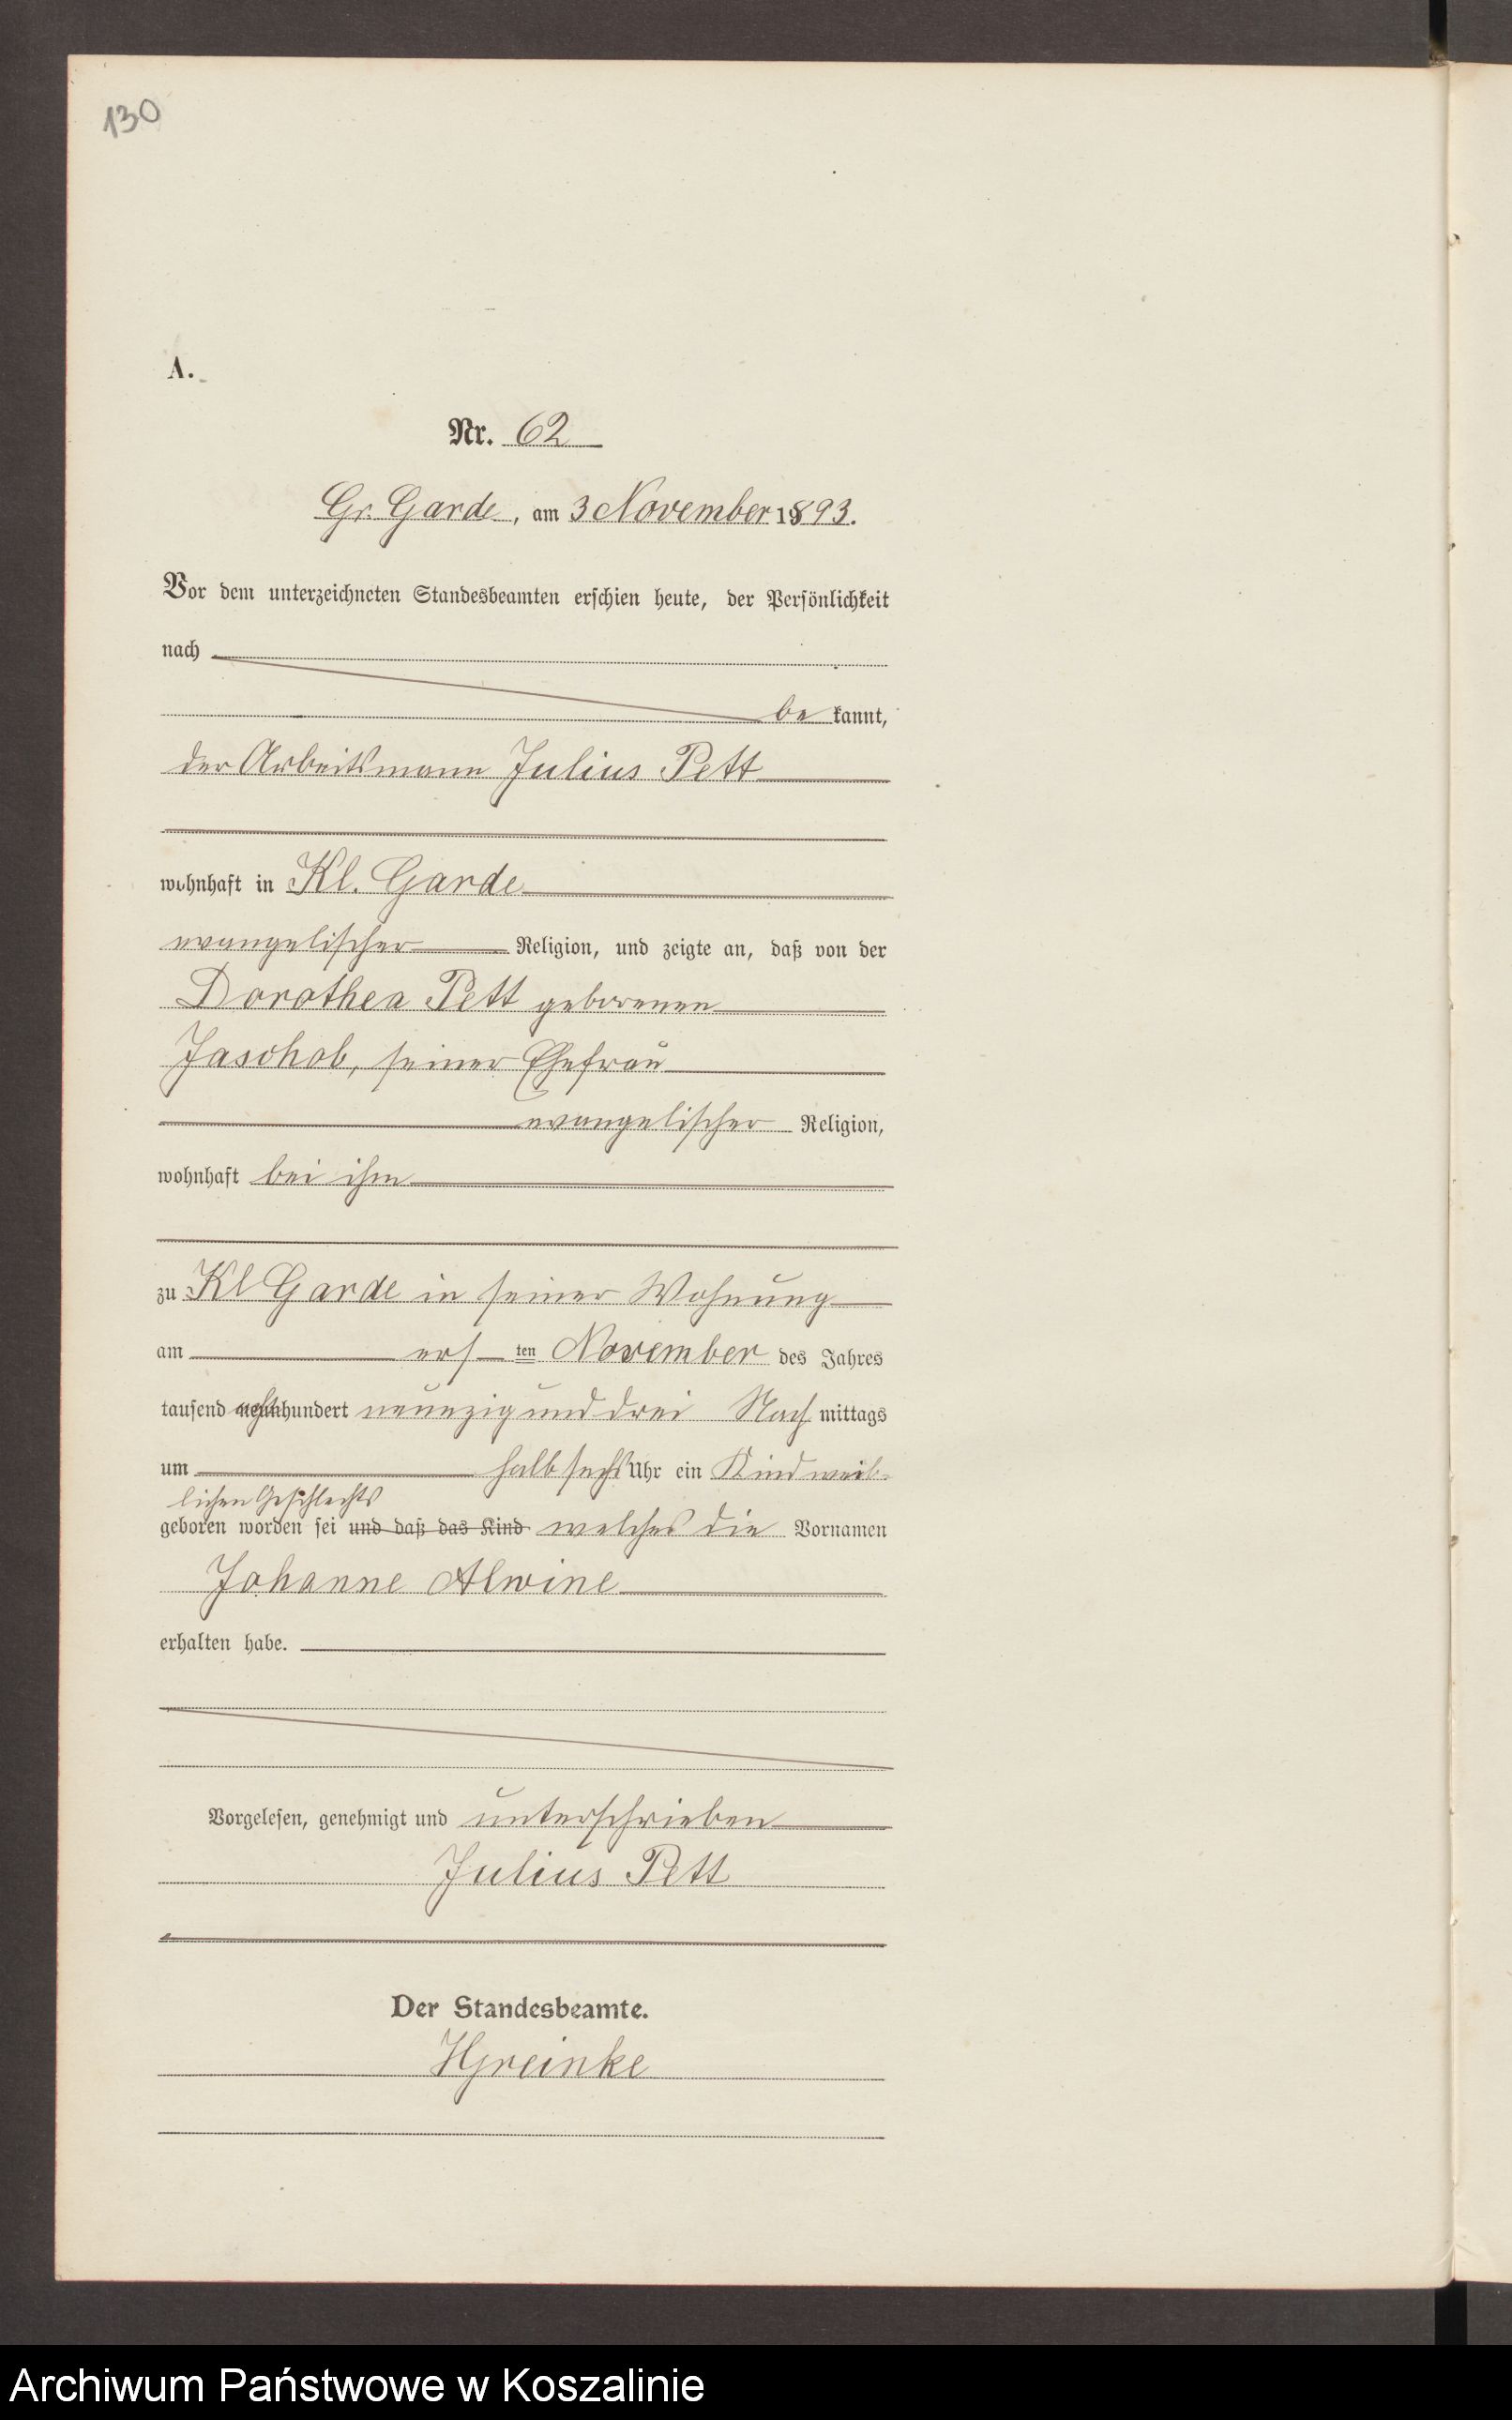 130
A.
Nr. 62
Gr. Garde, am 3 November 1893.
Vor dem unterzeichneten Standesbeamten erschien heute, der Persönlichkeit
nach
be kannt,
der Arbeitsmann Julius Pett
wohnhaft in Kl. Garde
evangelischer Religion, und zeigte an, daß von der
Dorothea Pett geborenen
Jaschob, seiner Ehefrau
evangelischer Religion,
wohnhaft bei ihm
zu Kl Garde in seiner Wohnung
am ers ten November des Jahres
tausend achthundert neunzig und drei Nach mittags
um halb sechs Uhr ein Kind weib-
lichen Geschlechts
geboren worden sei und daß das Kind welches die Vornamen
Johanne Alwine
erhalten habe.
Vorgelesen, genehmigt und unterschrieben
Julius Pett
Der Standesbeamte.
HGreinke
Archiwum Państwowe w Koszalinie